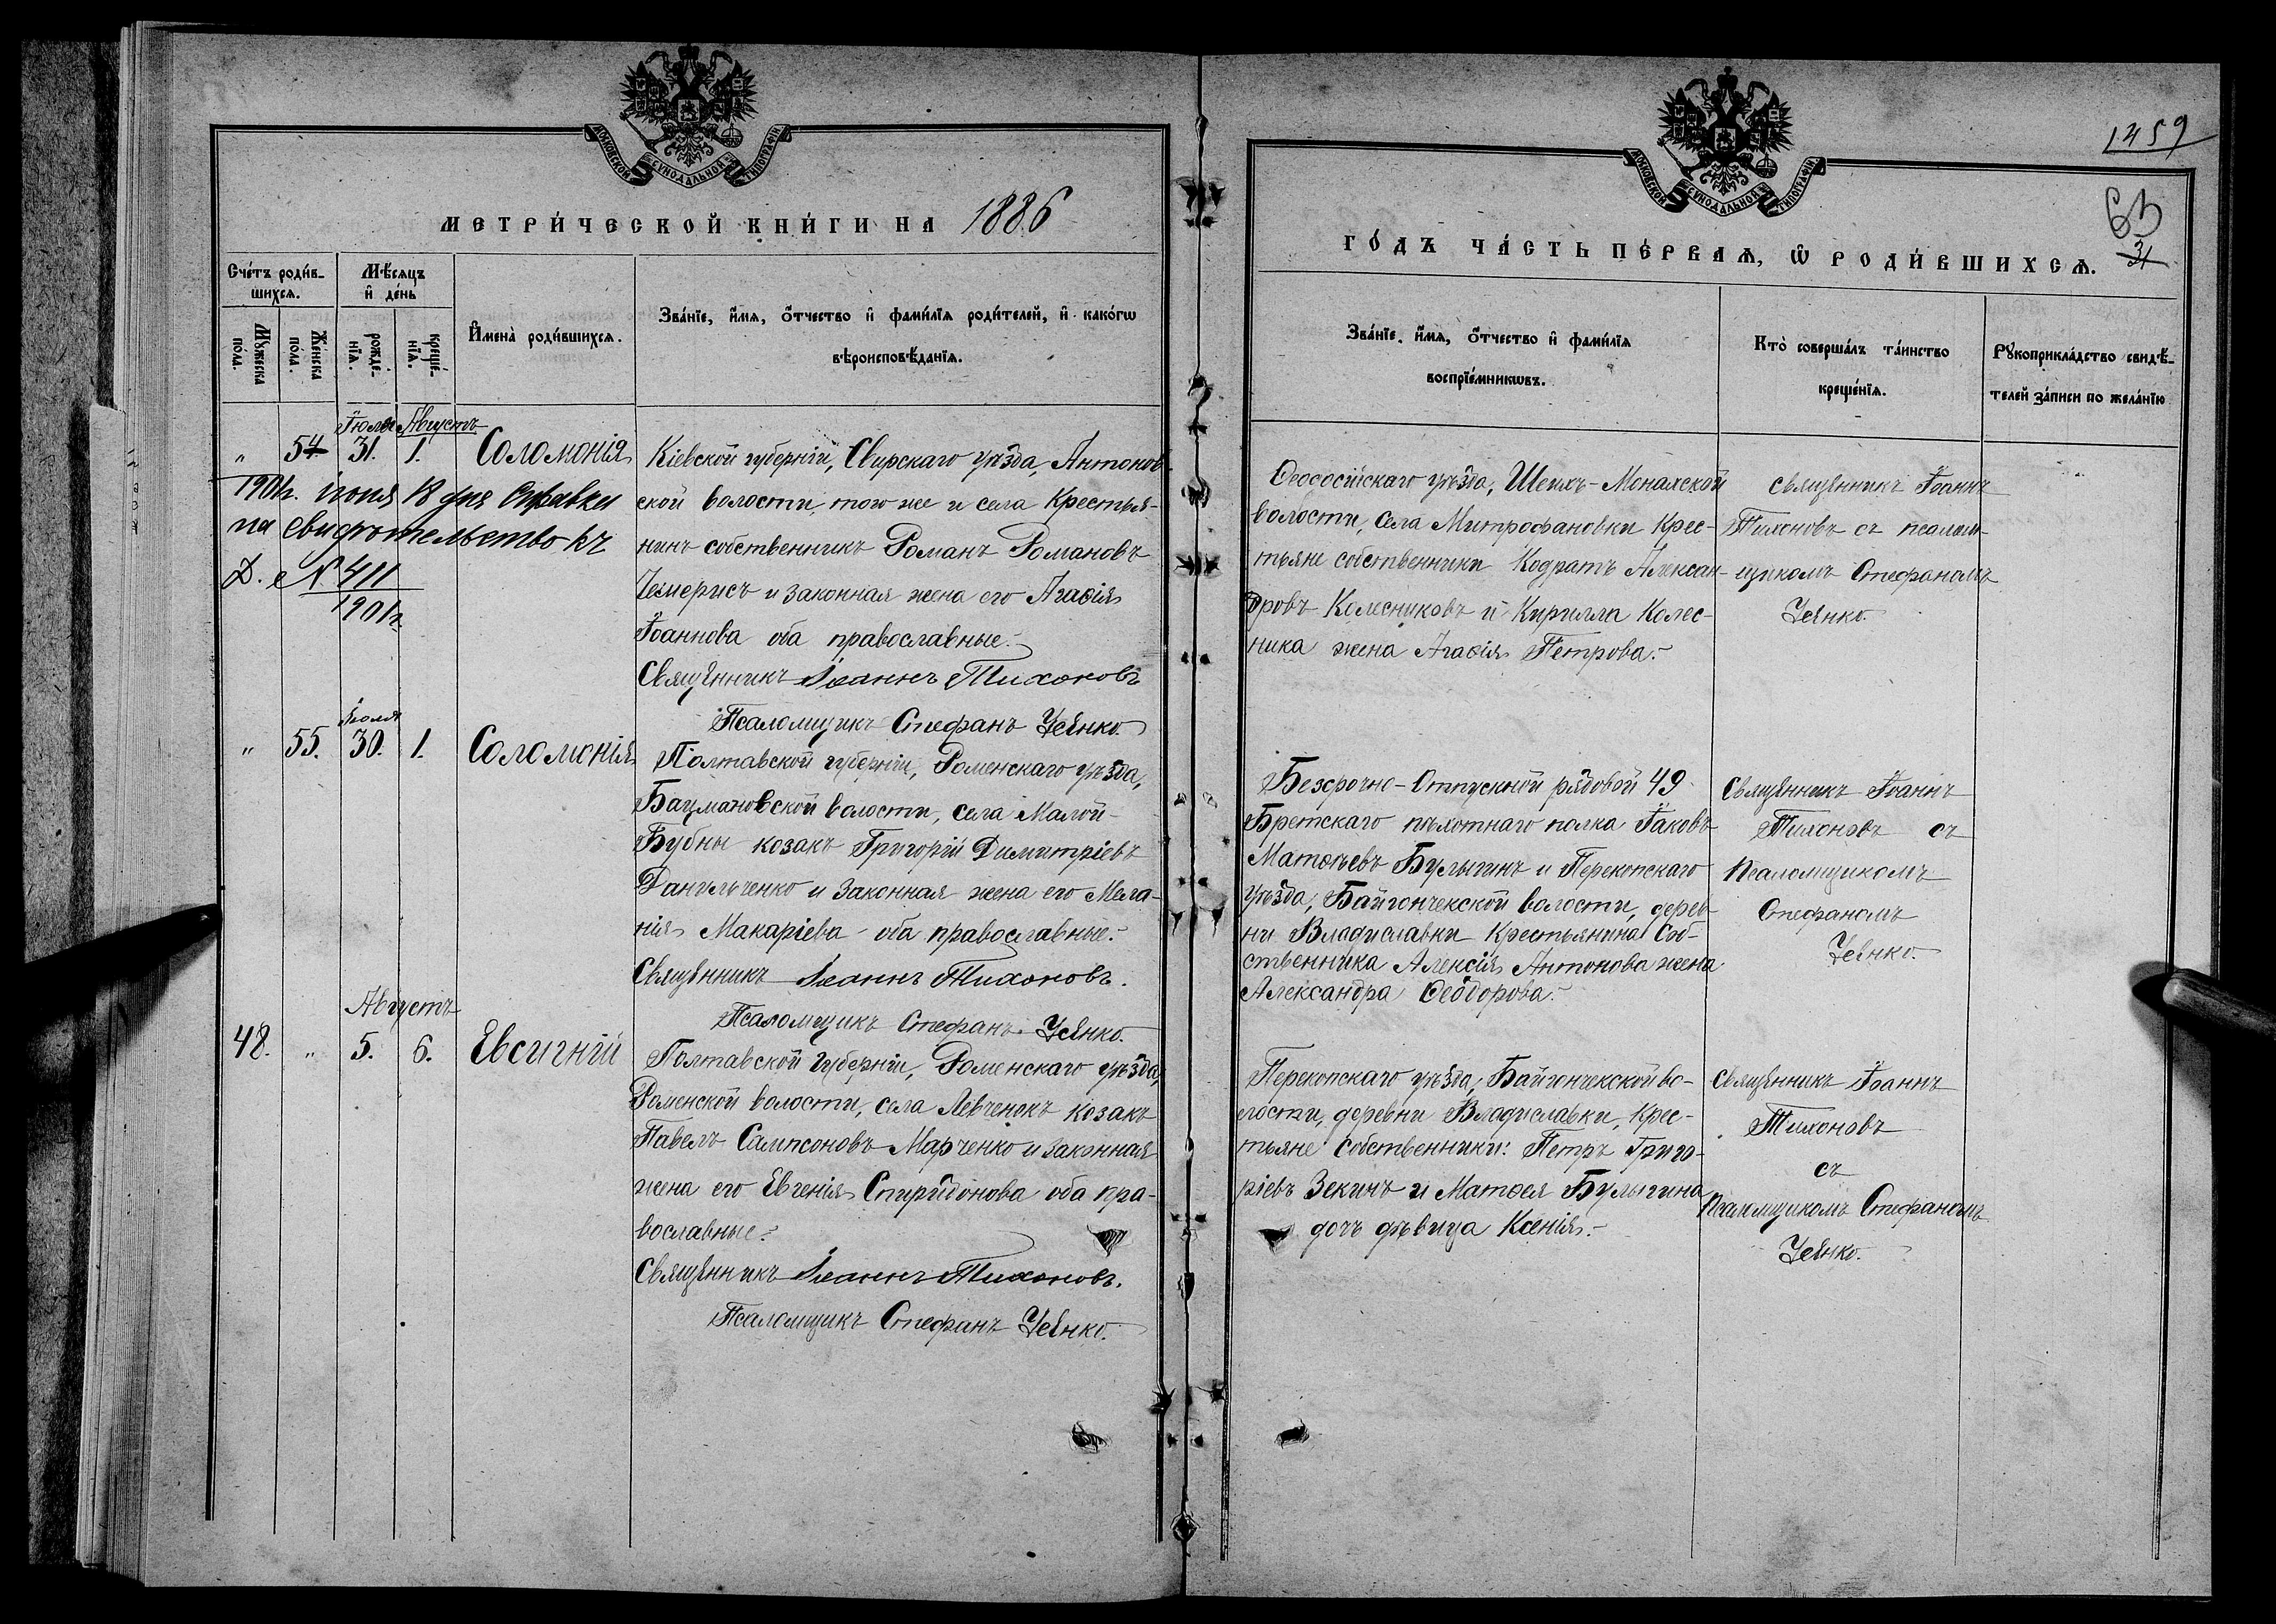 МОСКОВСКОЙ СѴНОДАЛЬНОЙ ТИПОГРАФІИ
МЕТРИ́ЧЕСКОЙ КНИ́ГИ НА 1886
Сче́тъ роди́в-
шихся.
Мѣ́сяцъ
и҆ де́нь
Мꙋ́жеска
по́ла.
Же́нска
по́ла.
рожде́-
нїѧ.
креще́-
нїѧ.
И҆мена̀ роди́вшихсѧ.
Зва́нїе, и҆́мѧ, ѻ҆́тчество и҆ фами́лїѧ роди́телей, и҆ како́гѡ
вѣроисповѣ́данїѧ.
Іюля Августъ
" 54 31. 1. Соломонія
1901г. іюня 18 дня Справки
на свидѣтельство къ
Д. № 411
1901г.
Кіевской губерніи, Свирскаго уѣзда, Антонов-
ской волости, того же и села Крестья-
нинъ собственникъ Романъ Романовъ
Чемерисъ и законная жена его Агаѳія
Іоаннова оба православные.
Священникъ Іоаннъ Тихоновъ
Псаломщикъ Стефанъ Усенко.
Іюля
" 55. 30. 1. Соломонія
Полтавской губерніи, Роменскаго уѣзда,
Бацмановской волости, села Малой-
Бубны козакъ Григорій Димитріевъ
Данильченко и законная жена его Мела-
нія Макаріева оба православные.
Священникъ Іоаннъ Тихоновъ.
Псаломщикъ Стефанъ Усенко.
Августъ
48. " 5. 6. Евсигній
Полтавской губерніи, Роменскаго уѣзда,
Роменской волости, села Левченокъ козакъ
Павелъ Сампсоновъ Марченко и законная
жена его Евгенія Спиридонова оба пра-
вославные.
Священникъ Іоаннъ Тихоновъ.
Псаломщикъ Стефанъ Усенко.
МОСКОВСКОЙ СѴНОДАЛЬНОЙ ТИПОГРАФІИ
1459
63
31
ГО́ДЪ ЧА́СТЬ ПЕ́РВАѦ, Ѿ РОДИ́ВШИХСѦ.
Зва́нїе, и҆́мѧ, ѻ҆́тчество и҆ фами́лїѧ
воспрїе́мникѡвъ.
Кто̀ соверша́лъ та́инство
креще́нїѧ.
Рꙋкоприкла́дство свидѣ́-
телей за́писи по жела́нїю
Ѳеодосійскаго уѣзда, Шеихъ-Монахской
волости, села Митрофановки Крес-
тьяне собственники Кодратъ Алексан-
дровъ Колесниковъ и Кирилла Колес-
ника жена Агаѳія Петрова.
священникъ Іоаннъ
Тихоновъ съ псалом-
щикомъ Стефаномъ
Усенко.
Безсрочно-Отпускной рядовой 49
Бретскаго пѣхотнаго полка Іаковъ
Матѳѣевъ Булыгинъ и Перекопскаго
уѣзда, Байгончекской волости, дерев-
ни Владиславки Крестьянина Соб-
ственника Алексія Антонова жена
Александра Ѳеодорова.
Священникъ Іоаннъ
Тихоновъ съ
Псаломщикомъ
Стефаномъ
Усенко.
Перекопскаго уѣзда, Байгончекской во-
лости, деревни Владиславки, Крес-
тьяне Собственники: Петръ Григо-
ріевъ Зекинъ и Матѳея Булыгина
дочь дѣвица Ксенія.
Священникъ Іоаннъ
Тихоновъ
съ
Псаломщикомъ Стефаномъ
Усенко.